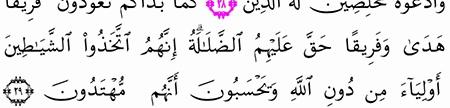 وَٱدْعُوهُ مُخْلِصِينَ لَهُ ٱلدِّينَ ٢٨ كَمَا بَدَأَكُمْ تَعُودُونَ فَرِيقًا
هَدَىٰ وَفَرِيقًا حَقَّ عَلَيْهِمُ ٱلضَّلَٰلَةُ إِنَّهُمُ ٱتَّخَذُوا۟ ٱلشَّيَٰطِينَ
أَوْلِيَآءَ مِن دُونِ ٱللَّهِ وَيَحْسَبُونَ أَنَّهُم مُّهْتَدُونَ ٢٩